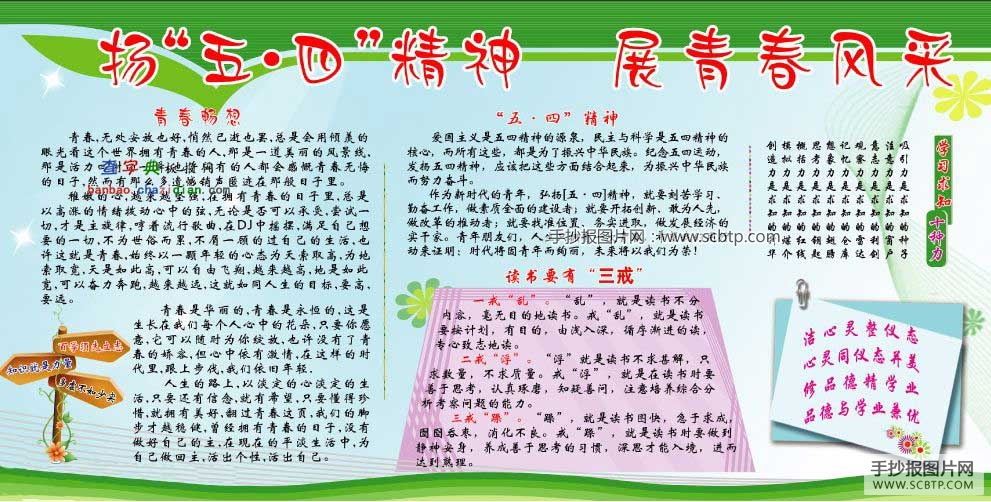 扬“五·四”精神 展青春风采
青春畅想
青春,无处安放也好,悄然已逝也罢,总是会用倾美的
眼光看这个世界拥有青春的人,那是一道美丽的风景线,
那是活力
有的人都会感慨青春无悔
的日子,然而有那么多遗憾销声匿迹在那般日子里。
稚嫩的心,越来越坚强,在拥有青春的日子里,总是
以高涨的情绪拨动心中的弦,无论是否可以承受,尝试一
切,才是主旋律,哼着流行歌曲,在DJ中摇摆,满足自己想
要的一切,不为世俗而累,不屑一顾的过自己的生活,也
许这就是青春,始终以一颗年轻的心态为天索取高,为地
索取宽,天是如此高,可以自由飞翔,越来越高,地是如此
宽,可以奋力奔跑,越来越远,这就如同人生的目标,要高,
要远。
青春是华丽的,青春是永恒的,这是
生长在我们每个人心中的花朵,只要你愿
意,它可以随时为你绽放,也许没有了青
春的娇容,但心中依有激情,在这样的时
代里,跟上步伐,我们依旧年轻.
人生的路上,以淡定的心淡定的生
活,只要还有信念,就有希望,只要懂得珍
惜,就拥有美好,翻过青春这页,我们的脚
步才越稳健,曾经拥有青春的日子,没有
做好自己的主,在现在的平淡生活中,为
自己做回主,活出个性,活出自己.
查字典
banbao.chazidian.com
百学须先立志
知识就是力量
多虚不如少实
“五·四”精神
爱国主义是五四精神的源泉，民主与科学是五四精神的
核心，而所有这些，都是为了振兴中华民族。纪念五四运动，
发扬五四精神，应该把这些方面结合起来，为振兴中华民族
而努力奋斗。
作为新时代的青年，弘扬[五·四]精神，就要刻苦学习、
勤奋工作，做素质全面的建设者；就要开拓创新、敢为人先，
做改革的推动者；就要找准位置、务实进取，做发展经济的
实干家。青年朋友们，
动来证明：时代将因青年而绚丽，未来将以我们为荣！
手抄报图片网：www.scbtp.com
读书要有“三戒”
一戒“乱”。“乱”，就是读书不分
内容，毫无目的地读书。戒“乱”，就是读书
要按计划，有目的，由浅入深，循序渐进的读，
专心致志地读。
二戒“浮”。“浮”就是读书不求甚解，只
求数量，不求质量。戒“浮”，就是在读书时要
善于思考，认真琢磨，知疑善问，注意培养综合分
析考察问题的能力。
三戒“躁”。“躁”，就是读书图快，急于求成，
囫囵吞枣，消化不良。戒“躁”，就是读书时要做到
静神安身，养成善于思考的习惯，深思才能入境，进而
达到熟理。
学习求知 十种力
吸引力是求知的种子
注意力是求知的窗户
意志力是求知的利剑
观察力是求知的雷达
记忆力是求知的仓库
想象力是求知的翅膀
思考力是求知的钥
概括力是求知的红线
模拟力是求知的媒介
创造力是求知的精华
洁心灵整仪态
心灵同仪态并美
修品德精学业
品德与学业兼优
手抄报图片网
WWW.SCBTP.COM